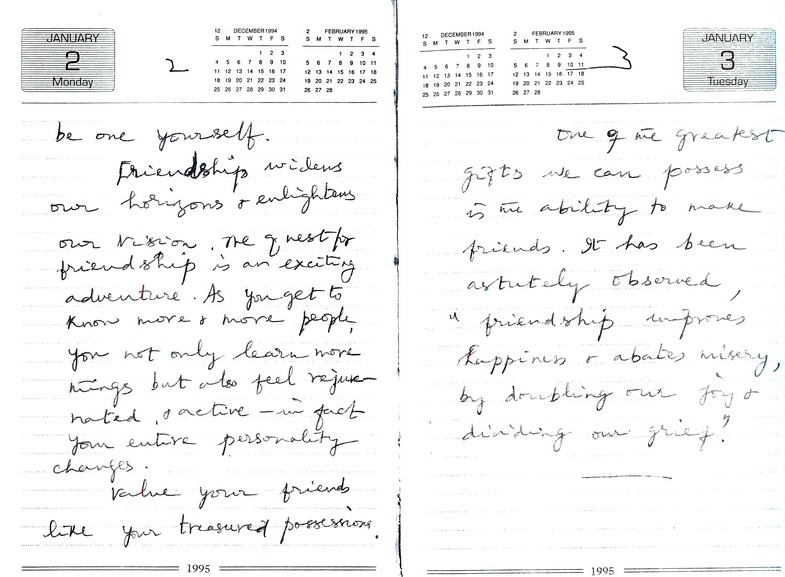 JANUARY
2
Monday
2
12 DECEMBER 1994
S M T W T F S
1 2 3
4 5 6 7 8 9 10
11 12 13 14 15 16 17
18 19 20 21 22 23 24
25 26 27 28 29 30 31
2 FEBRUARY 1995
S M T W T F S
1 2 3 4
5 6 7 8 9 10 11
12 13 14 15 16 17 18
19 20 21 22 23 24 25
26 27 28
be one yourself.
Friendship widens
our horizons & enlightens
our vision. The quest for
friendship is an exciting
adventure. As you get to
know more & more people,
you not only learn more
things but also feel rejuve-
nated, & active - in fact
your entire personality
changes.
Value your friends
like your treasured possessions.
1995
12 DECEMBER 1994
S M T W T F S
1 2 3
4 5 6 7 8 9 10
11 12 13 14 15 16 17
18 19 20 21 22 23 24
25 26 27 28 29 30 31
2 FEBRUARY 1995
S M T W T F S
1 2 3 4
5 6 7 8 9 10 11
12 13 14 15 16 17 18
19 20 21 22 23 24 25
26 27 28
3
JANUARY
3
Tuesday
One of the greatest
gifts we can possess
is the ability to make
friends. It has been
astutely observed,
"friendship improves
happiness & abates misery,
by doubling our joy &
dividing our grief."
1995